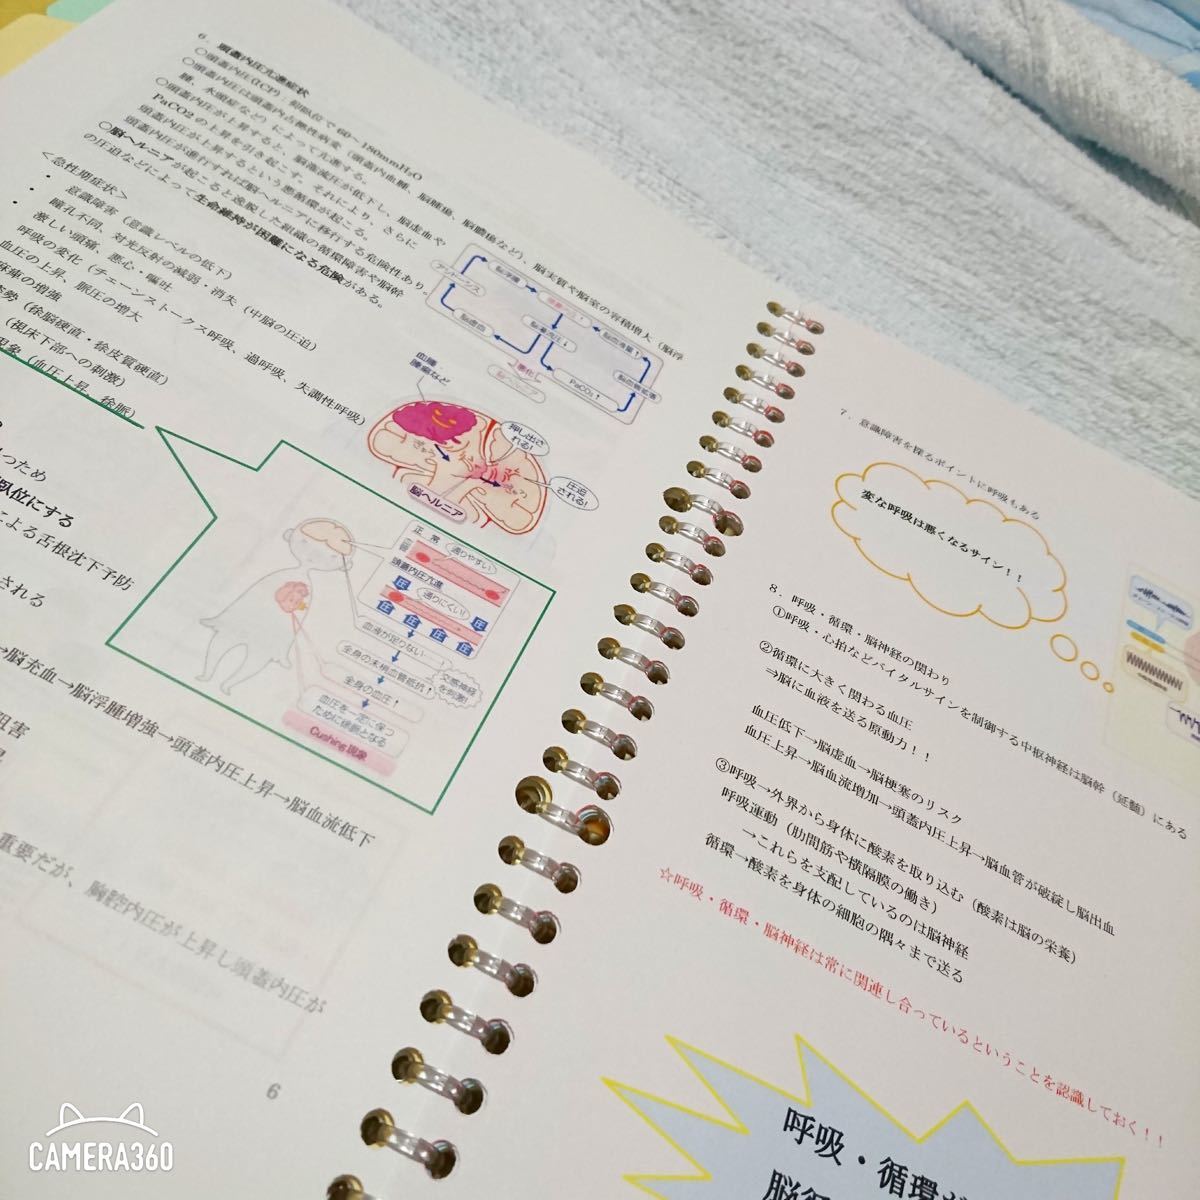 6．頭蓋内圧亢進症状
〇頭蓋内圧(ICP)：側臥位で 60～180mmH₂O
〇頭蓋内圧は頭蓋内占拠性病変（頭蓋内血腫、脳腫瘍、脳膿瘍など）、脳実質や脳室の容積増大（脳浮
腫、水頭症など）によって亢進する。
〇頭蓋内圧が上昇すると、脳灌流圧が低下し、脳虚血や
PaCO2 の上昇を引き起こす。それにより、さらに
頭蓋内圧が上昇するという悪循環が起こる。
頭蓋内圧が進行すれば脳ヘルニアに移行する危険性あり。
〇脳ヘルニアが起こると逸脱した組織の循環障害や脳幹
の圧迫などによって生命維持が困難になる危険がある。
＜急性期症状＞
・意識障害（意識レベルの低下）
・瞳孔不同、対光反射の減弱・消失（中脳の圧迫）
・激しい頭痛、悪心・嘔吐
呼吸の変化（チェーンストークス呼吸、過呼吸、失調性呼吸）
血圧の上昇、脈圧の増大
麻痺の増強
姿勢（除脳硬直・除皮質硬直）
（視床下部への刺激）
現象（血圧上昇、徐脈）
脳浮腫
脳虚血
脳灌流圧↓
PaCO₂↑
脳血流量↑
脳血管拡張
悪化
脳ヘルニア
血腫
腫瘍など
押し出さ
れる!
圧迫
される!
脳ヘルニア
正常
通りやすい!
頭蓋内圧亢進
圧
通りにくい!
圧
圧 圧 圧 圧
血液が足りない…!
全身の末梢血管抵抗↑
交感神経
を刺激!
全身の血圧↑
血圧を一定に保つ
ために徐脈となる
Cushing現象
つため
臥位にする
による舌根沈下予防
される
→脳充血→脳浮腫増強→頭蓋内圧上昇→脳血流低下
阻害
昇
重要だが、胸腔内圧が上昇し頭蓋内圧が
6
7．意識障害を探るポイントに呼吸もある
変な呼吸は悪くなるサイン！！
8．呼吸・循環・脳神経の関わり
①呼吸・心拍などバイタルサインを制御する中枢神経は脳幹（延髄）にある
②循環に大きく関わる血圧
⇒脳に血液を送る原動力！！
血圧低下→脳虚血→脳梗塞のリスク
血圧上昇→脳血流増加→頭蓋内圧上昇→脳血管が破綻し脳出血
③呼吸→外界から身体に酸素を取り込む（酸素は脳の栄養）
呼吸運動（肋間筋や横隔膜の働き）
→これらを支配しているのは脳神経
循環→酸素を身体の細胞の隅々まで送る
☆呼吸・循環・脳神経は常に関連し合っているということを認識しておく！！
呼吸・循環
CAMERA360